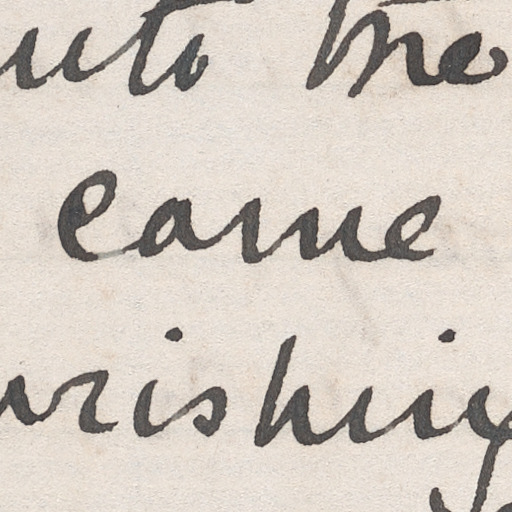 into the
came
urishing